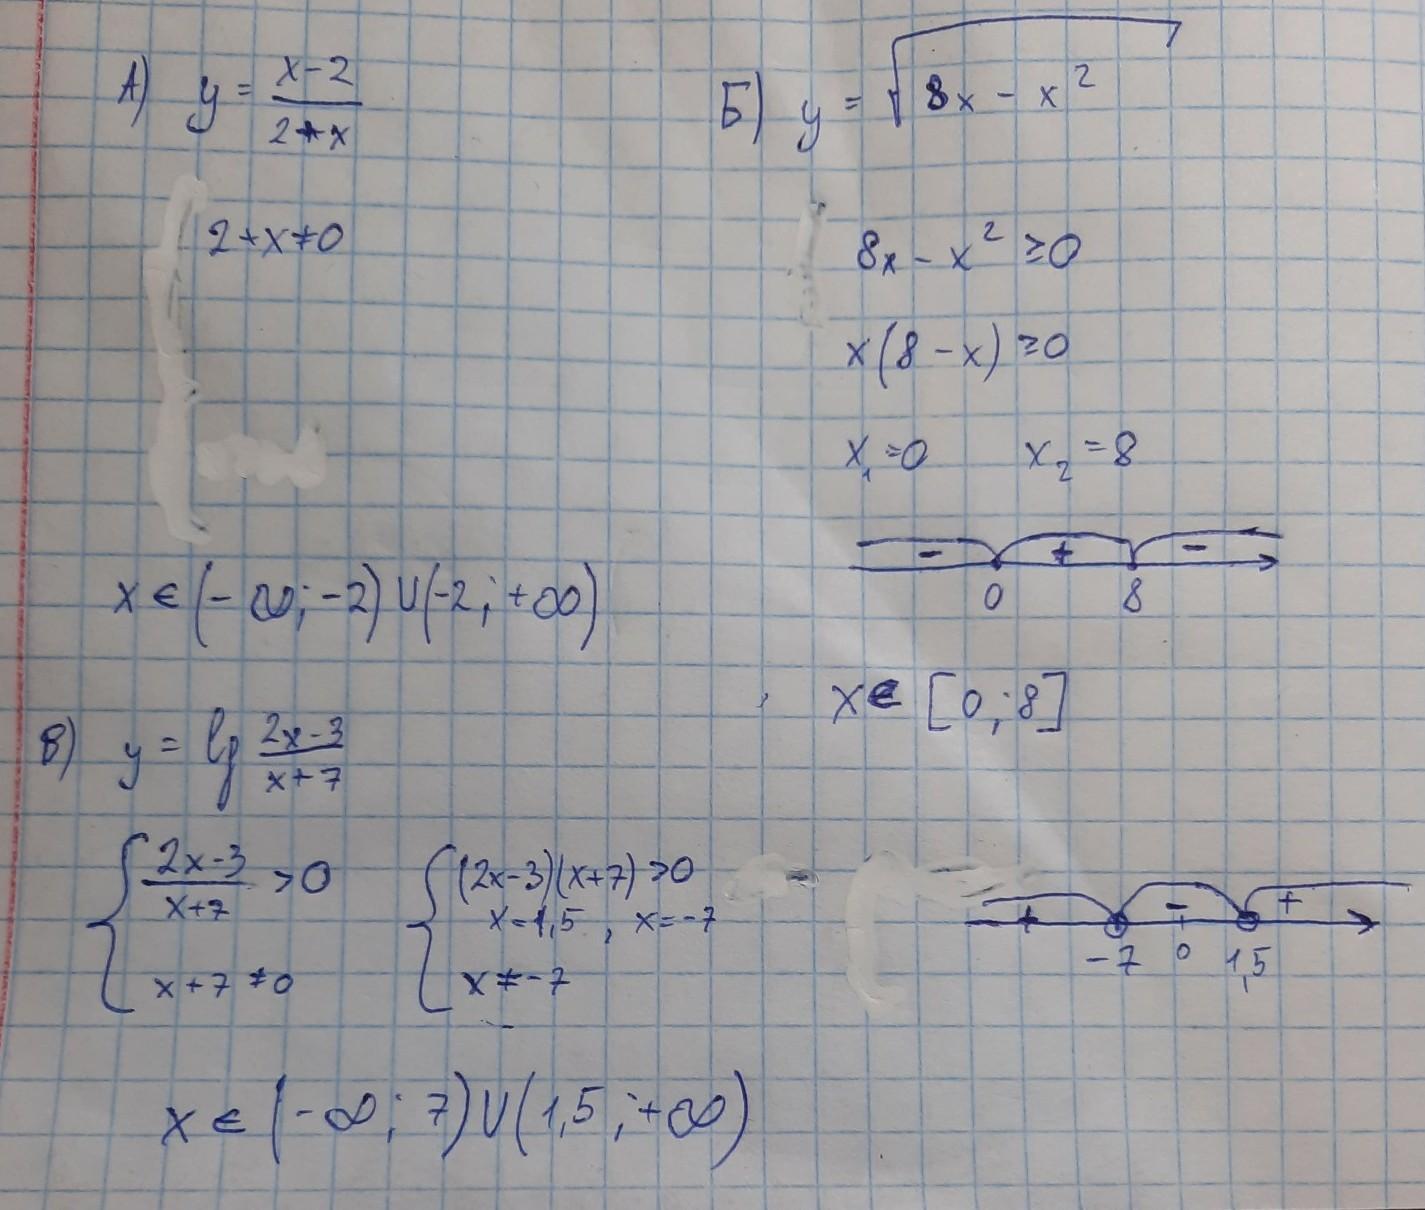 А) y = x-2 / 2+x
2+x≠0
x ∈ (-∞; -2) ∪ (-2; +∞)
Б) y = √(8x - x²)
8x - x² ≥0
x(8-x) ≥0
x₁=0 x₂=8
- + -
0 8
x ∈ [0; 8]
В) y = lg 2x-3 / x+7
{ 2x-3 / x+7 >0
x+7 ≠0
{ (2x-3)(x+7) >0
x=1,5 , x=-7
x ≠ -7
+ - +
-7 0 1,5
x ∈ (-∞; 7) ∪ (1,5; +∞)